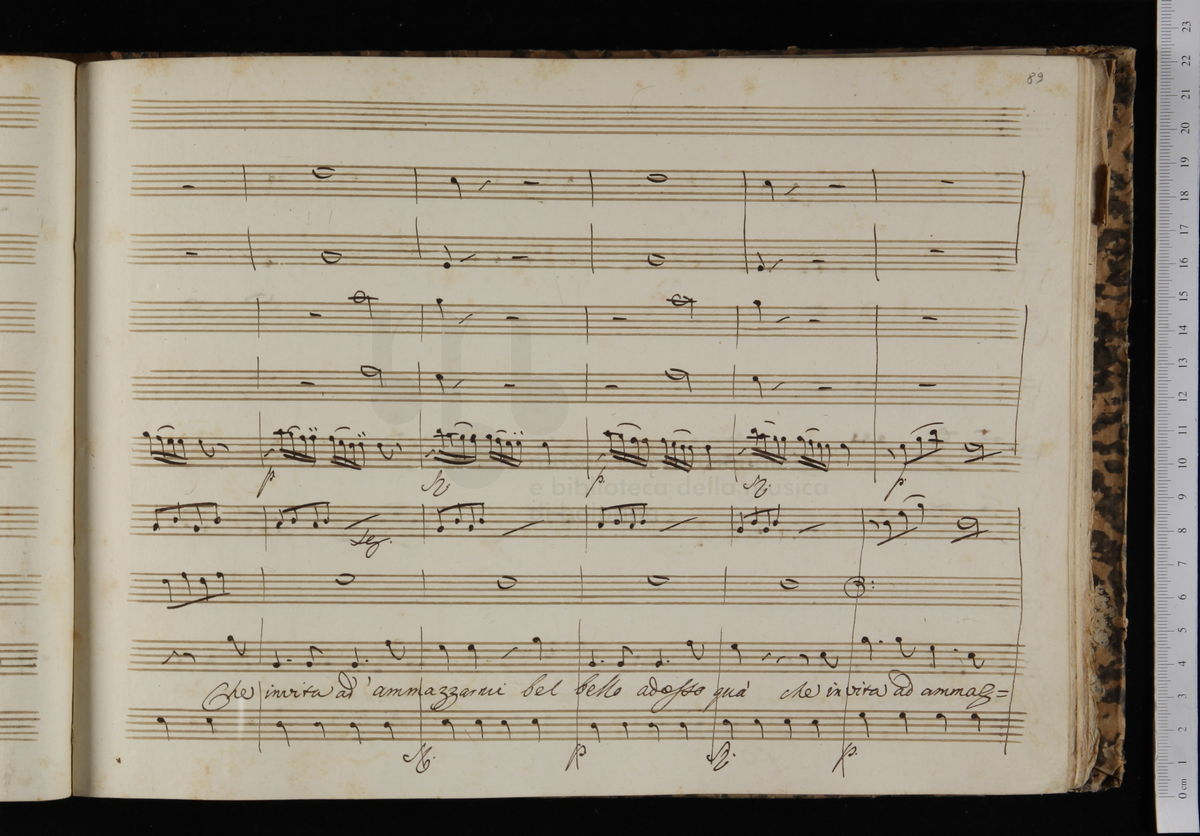 89
p. sf. p. sf. p.
e biblioteca della musica
Seg.
che invita ad ammazzarmi bel bello adosso quà che invita ad ammaz=
sf. p. sf. p.
0 cm 1 2 3 4 5 6 7 8 9 10 11 12 13 14 15 16 17 18 19 20 21 22 23